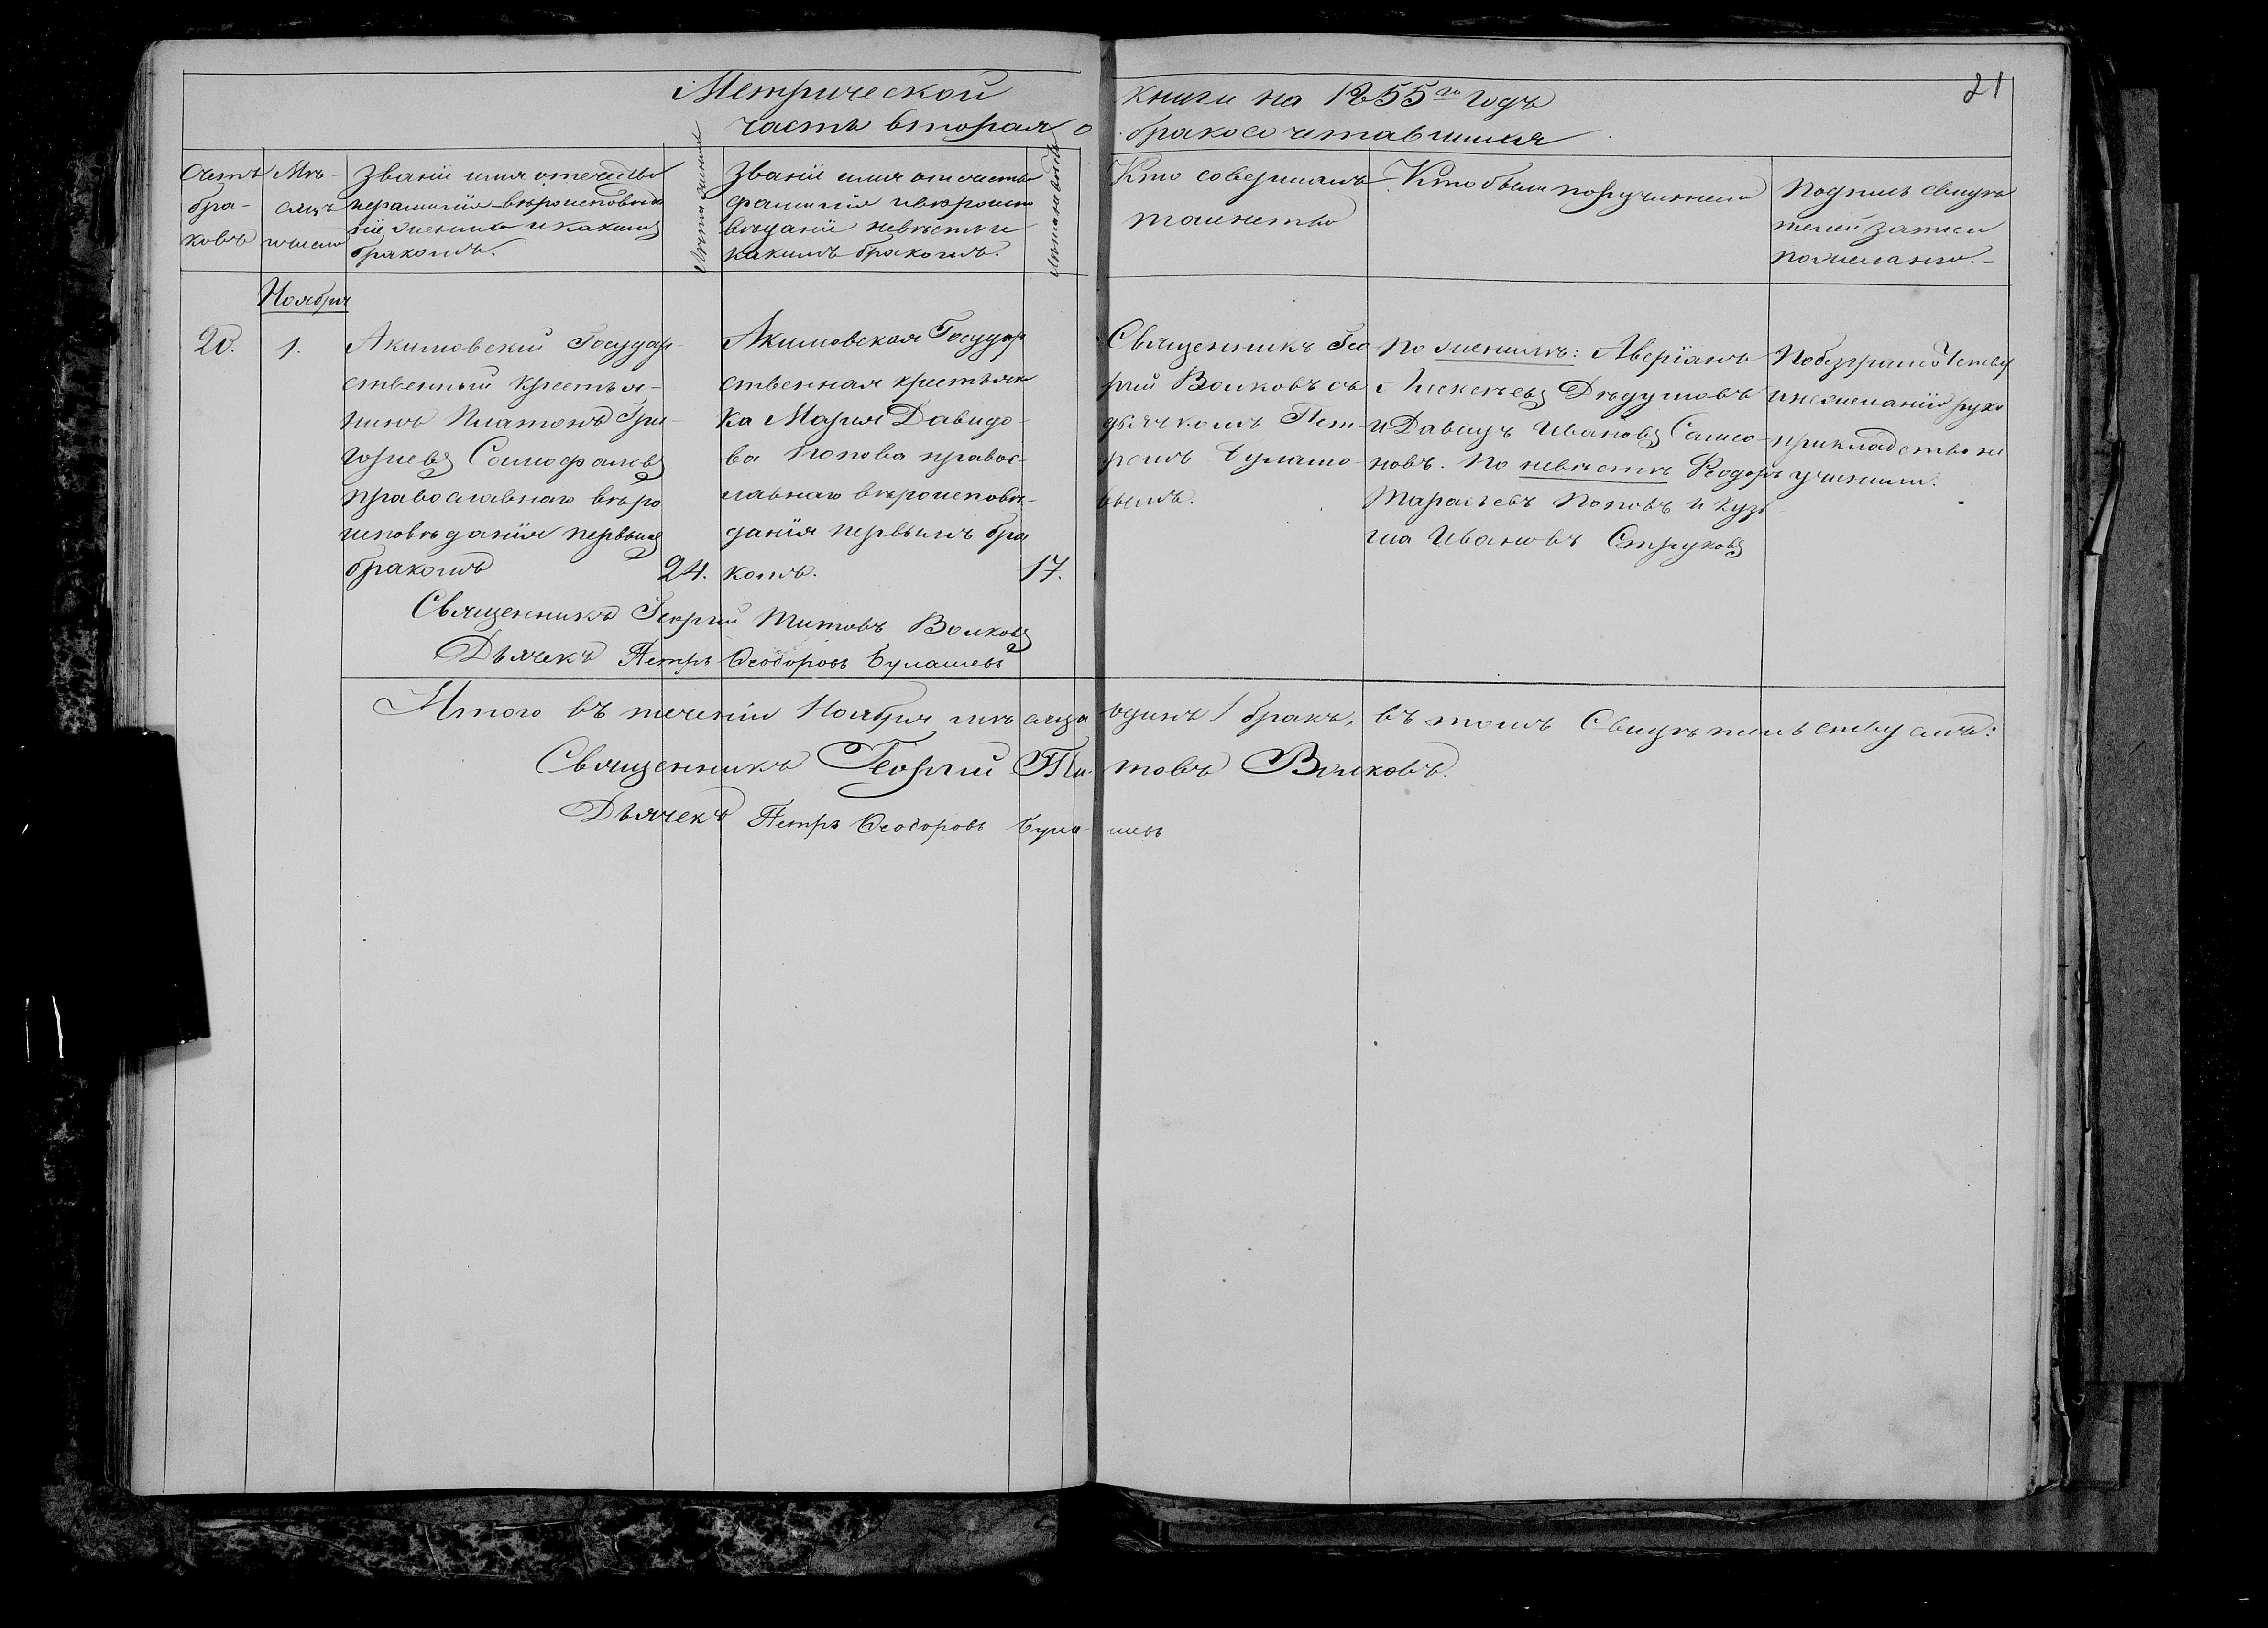 Метрической книги на 1855го годъ
21
часть вторая о бракосочетавшихся
Счетъ
бра-
ковъ
Мѣ-
сяцъ
и число
Званіе имя отчество
фамилія вѣроисповѣда
ніе жениха и какимъ
бракомъ.
Лѣта жениха
Званіе имя отчество
фамилія и вѣроиспо
вѣданіе невѣсты и
какимъ бракомъ.
Лѣта невѣсты
Кто совершалъ
таинство
Кто были поручители
Подпись свидѣ
телей записи
по желанію.
Ноября
20.
1.
Акимовскій Государ-
ственный крестья-
нинъ Платонъ Гри-
горьевъ Самофаловъ
православнаго вѣро
исповѣданія первымъ
бракомъ
24.
Акимовская Государ
ственная крестьян
ка Марія Давидо-
ва Попова правос-
лавнаго вѣроисповѣ-
данія первымъ бра
комъ.
17.
Священникъ Гео
ргій Волковъ съ
дьячкомъ Пет-
ромъ Булаше-
вымъ.
По женихѣ: Аверіанъ
Алексѣевъ Дѣдушовъ
и Давидъ Ивановъ Самсо-
новъ. По невѣстѣ Феодоръ
Тарасьевъ Поповъ и Кузь-
ма Ивановъ Струковъ
По безграмотству
и нежеланію руко
прикладства не
учинили.
Священникъ Георгій Титовъ Волковъ
Дьячекъ Петръ Ѳеодоровъ Булашевъ
Итого въ теченіи Ноября мѣсяца одинъ 1 бракъ, въ томъ Свидѣтельствуемъ:
Священникъ Георгій Титовъ Волковъ.
Дьячекъ Петръ Ѳеодоровъ Булашевъ